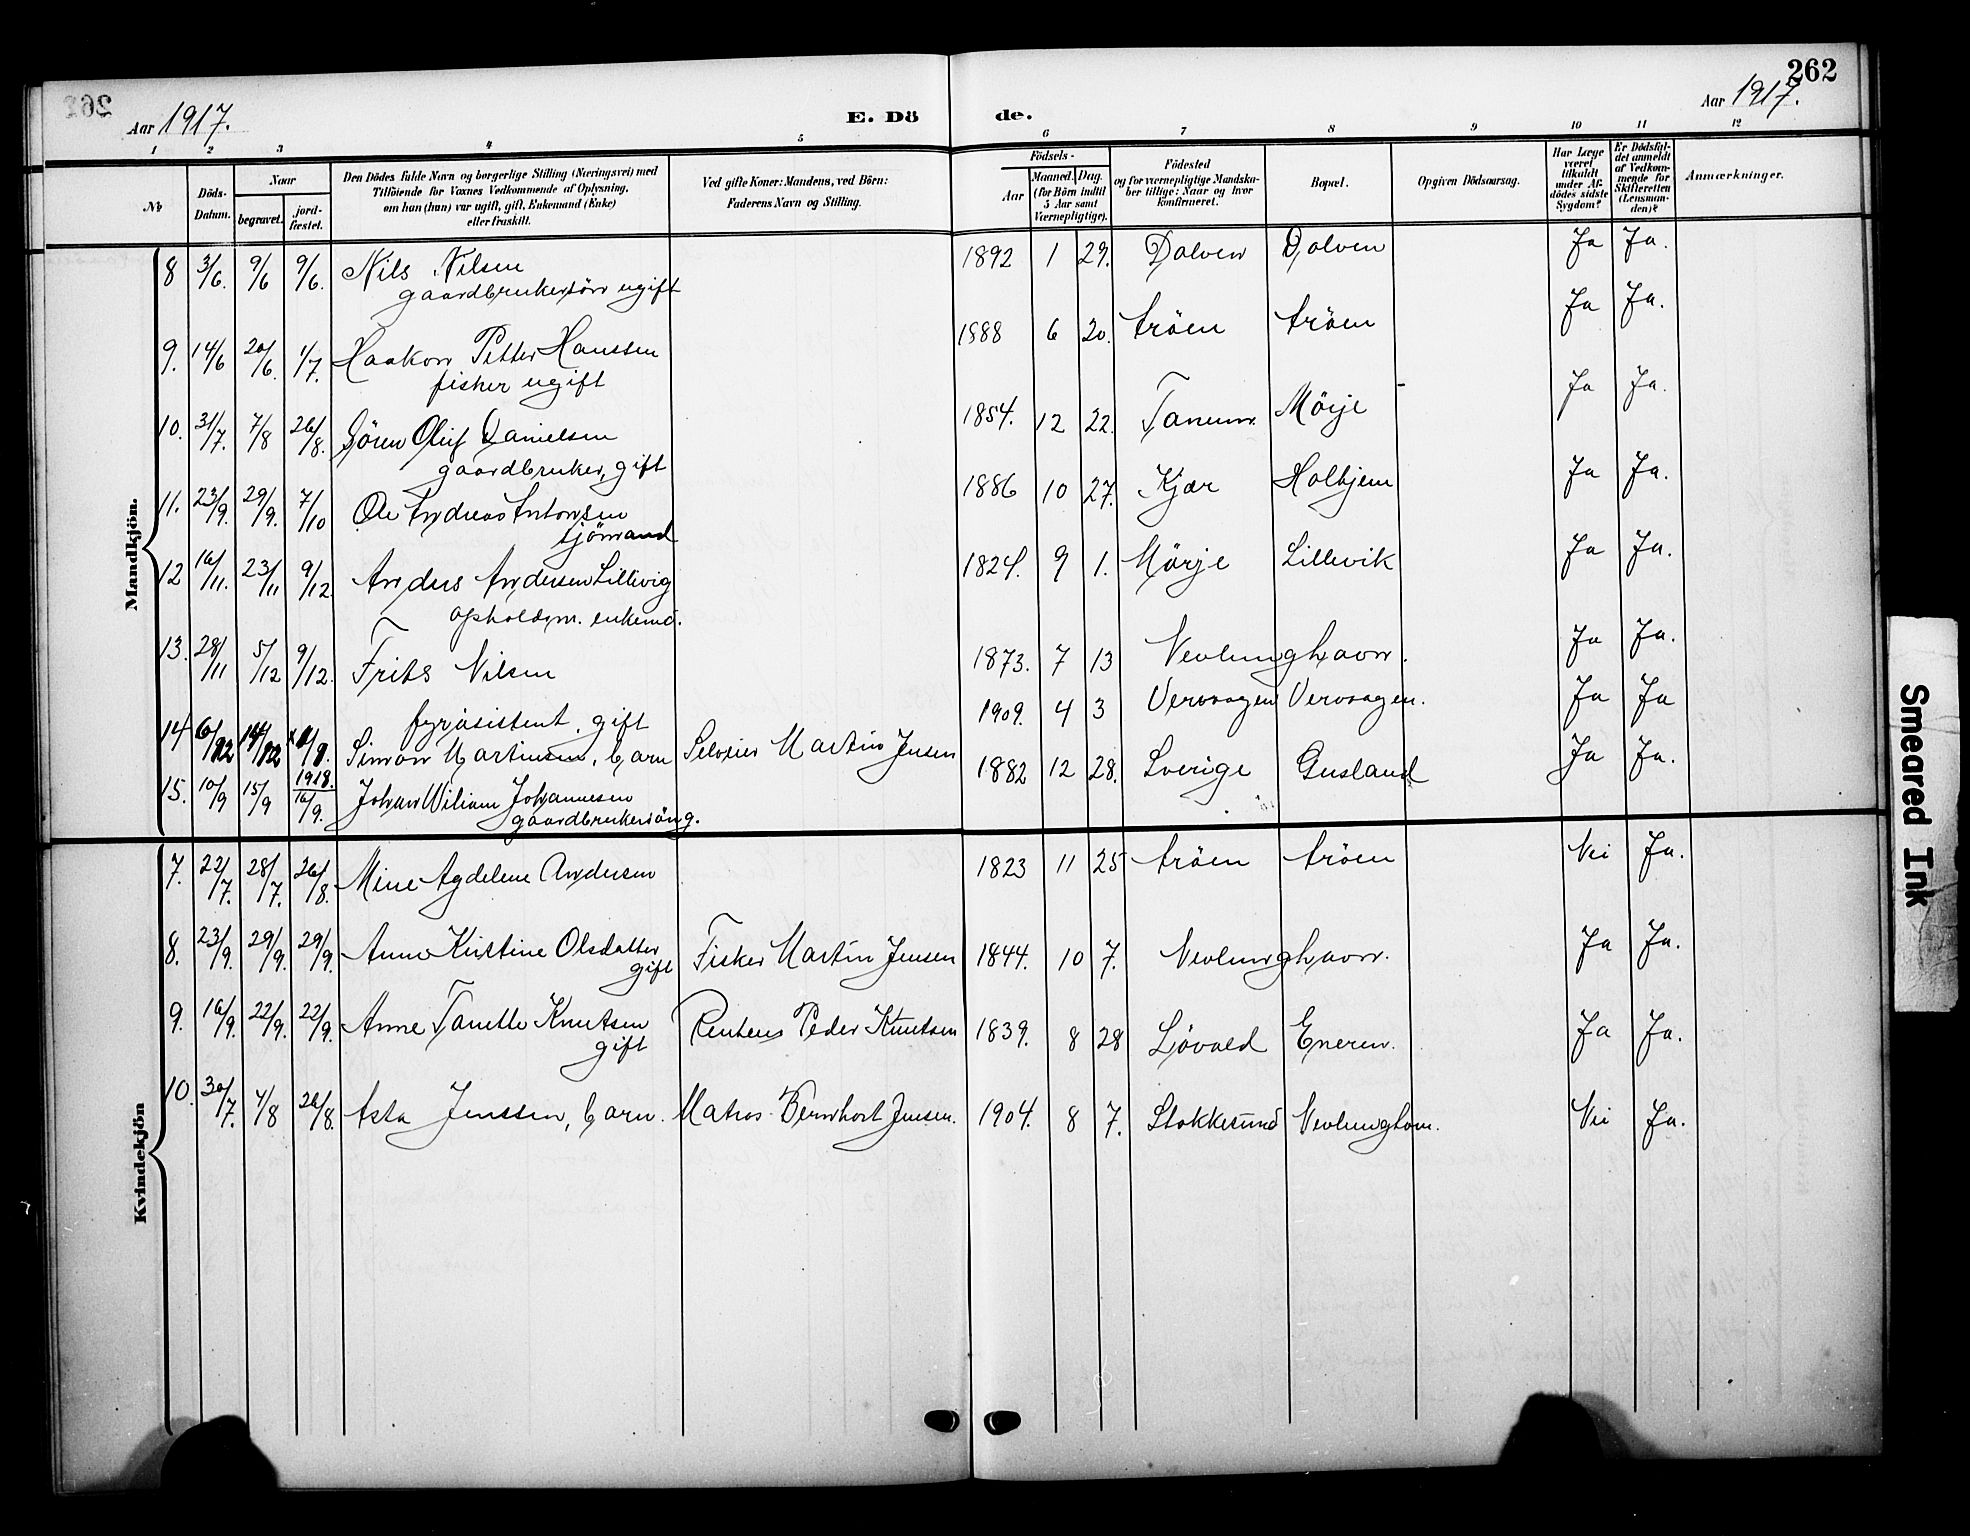 262
Aar 1917.
E. Dö de.
Aar 1917.
1 2 3 4 5 6 7 8 9 10 11 12
№
Döds-Datum.
Naar
begravet.
jord-fæstet.
Den Dödes fulde Navn og borgerlige Stilling (Næringsvei) med
Tilföiende for Voxnes Vedkommende af Oplysning,
om han (hun) var ugift, gift, Enkemand (Enke)
eller fraskilt.
Ved gifte Koner: Mandens, ved Börn:
Faderens Navn og Stilling.
Födsels-
Aar
Maaned. Dag.
(for Börn indtil
5 Aar samt
Værnepligtige).
Födested
og for værnepligtige Mandska-
ber tillige: Naar og hvor
konfirmeret.
Bopæl.
Opgiven Dödsaarsag.
Har Læge
været
tilkaldt
under Af-
dödes sidste
Sygdom?
Er Dödsfal-
det anmeldt
af Vedkom-
mende for
Skifteretten
(Lensman-
den)?
Anmærkninger.
Mandkjön.
8 3/6. 9/6 9/6. Nils Nilsen 1892 1 29. Dolven Dolven Ja Ja.
gaardbrukersön ugift
9. 14/6 20/6. 1/7. Haakon Petter Hanssen 1888 6 20. Aröen Aröen Ja Ja.
fisker ugift
10. 31/7. 7/8 26/8. Sören Oluf Danielsen 1854. 12 22. Tanum Mörje Ja Ja.
gaardbruker, gift
11. 23/9. 29/9. 7/10 Ole Andreas Antonsen 1886 10 27. Kjær Holbjem Ja Ja.
sjömand
12 16/11. 23/11 9/12. Anders Andersen Lillevig 1824. 9 1. Mörje Lillevik Ja Ja.
opholdsm. enkemd.
13. 28/11 5/12 9/12. Frits Nilsen 1873. 7 13 Nevlunghavn. Ja Ja.
fyrasistent, gift
14 Simon Martinsen, barn Martin Jensen 1909. 4 3 Vervaagen Vervaagen. Ja Ja
1918.
15. 10/9 15/9 16/9. Johan Wiliam Johannesen 1882 12 28. Sverige Gusland Ja Ja.
Kvindekjön
7. 22/7. 28/7. 26/8. Mine Agdelene Andersen 1823 11 25 Aröen Aröen Nei Ja.
8. 23/9. 29/9. 29/9. Anne Kirstine Olsdatter Fisker Martin Jensen 1844. 10 7. Nevlunghavn. Ja Ja.
gift
9. 16/9. 22/9. 22/9. Anne Tanette Knutsen Peder Knutsen 1839. 8 28 Lövald Eneren. Ja Ja.
gift
10. 30/7. 4/8 26/8. Asta Jenssen, barn. Matros Bernhart Jensen. 1904. 8 7. Stokkesund Nevlunghavn. Nei Ja.
Smeared Ink